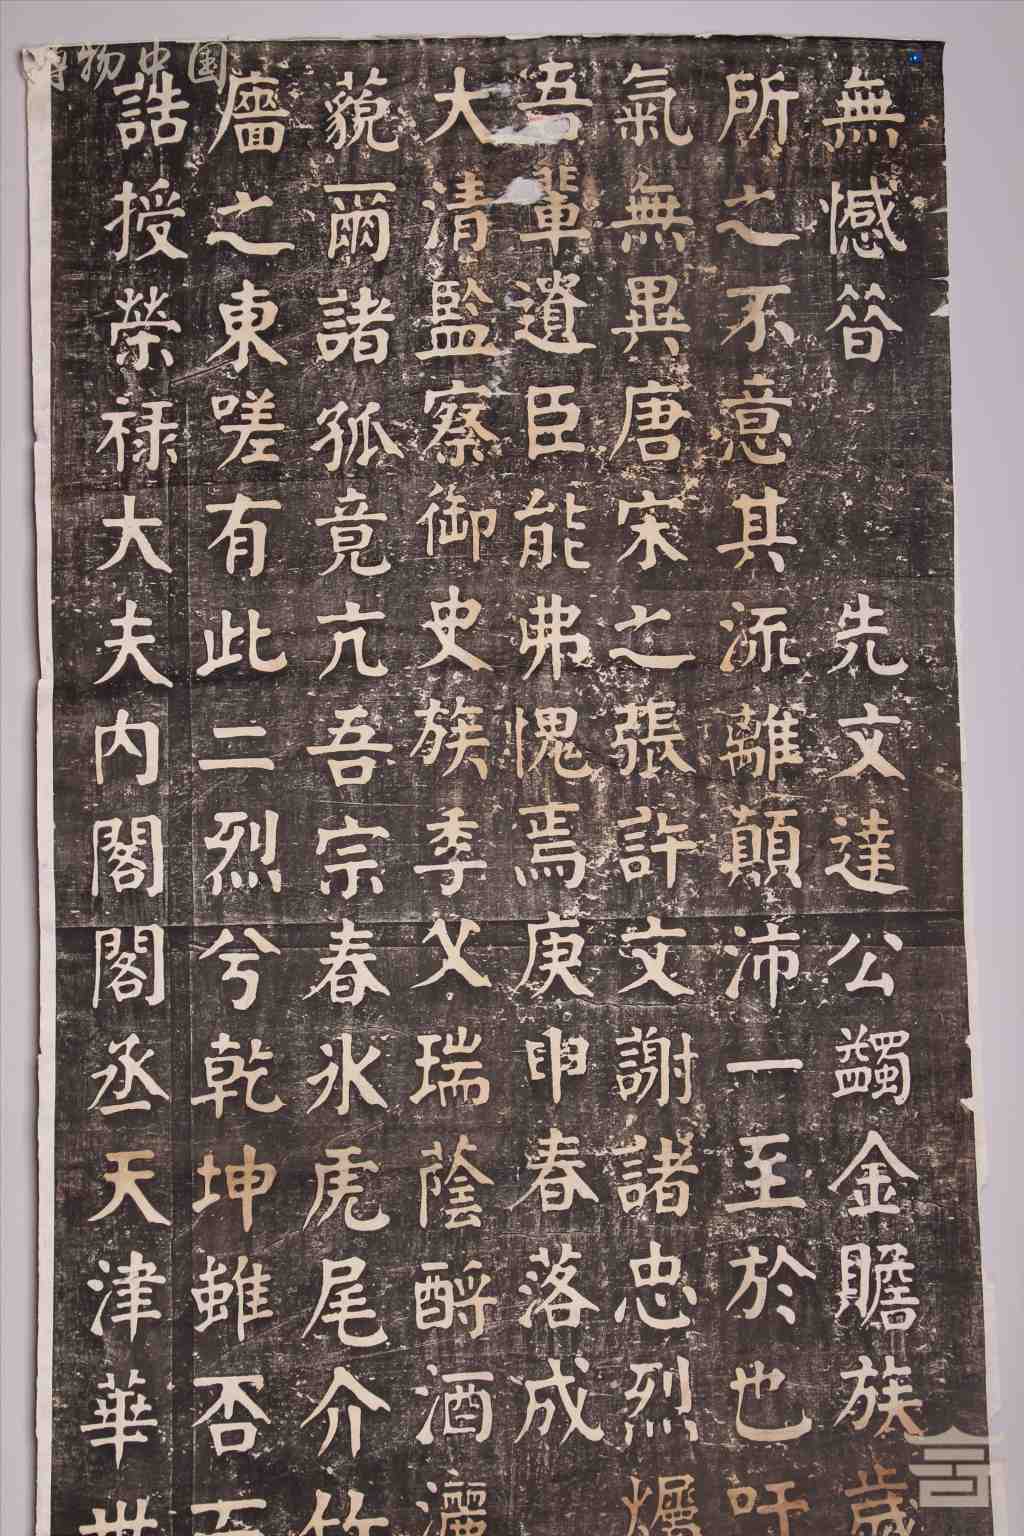 無憾答先文達公蠲金贍族歲
所之不意其流離顛沛一至於也吁
氣無異唐宋之張許文謝諸忠烈
吾輩遺臣能弗愧焉庚申春落成
大清監察御史族季父瑞蔭酹酒灑
藐爾諸孤竟亢吾宗春冰虎尾介竹
廧之東嗟有此二烈兮乾坤雖否
誥授榮祿大夫內閣閣丞天津華世
博物中国